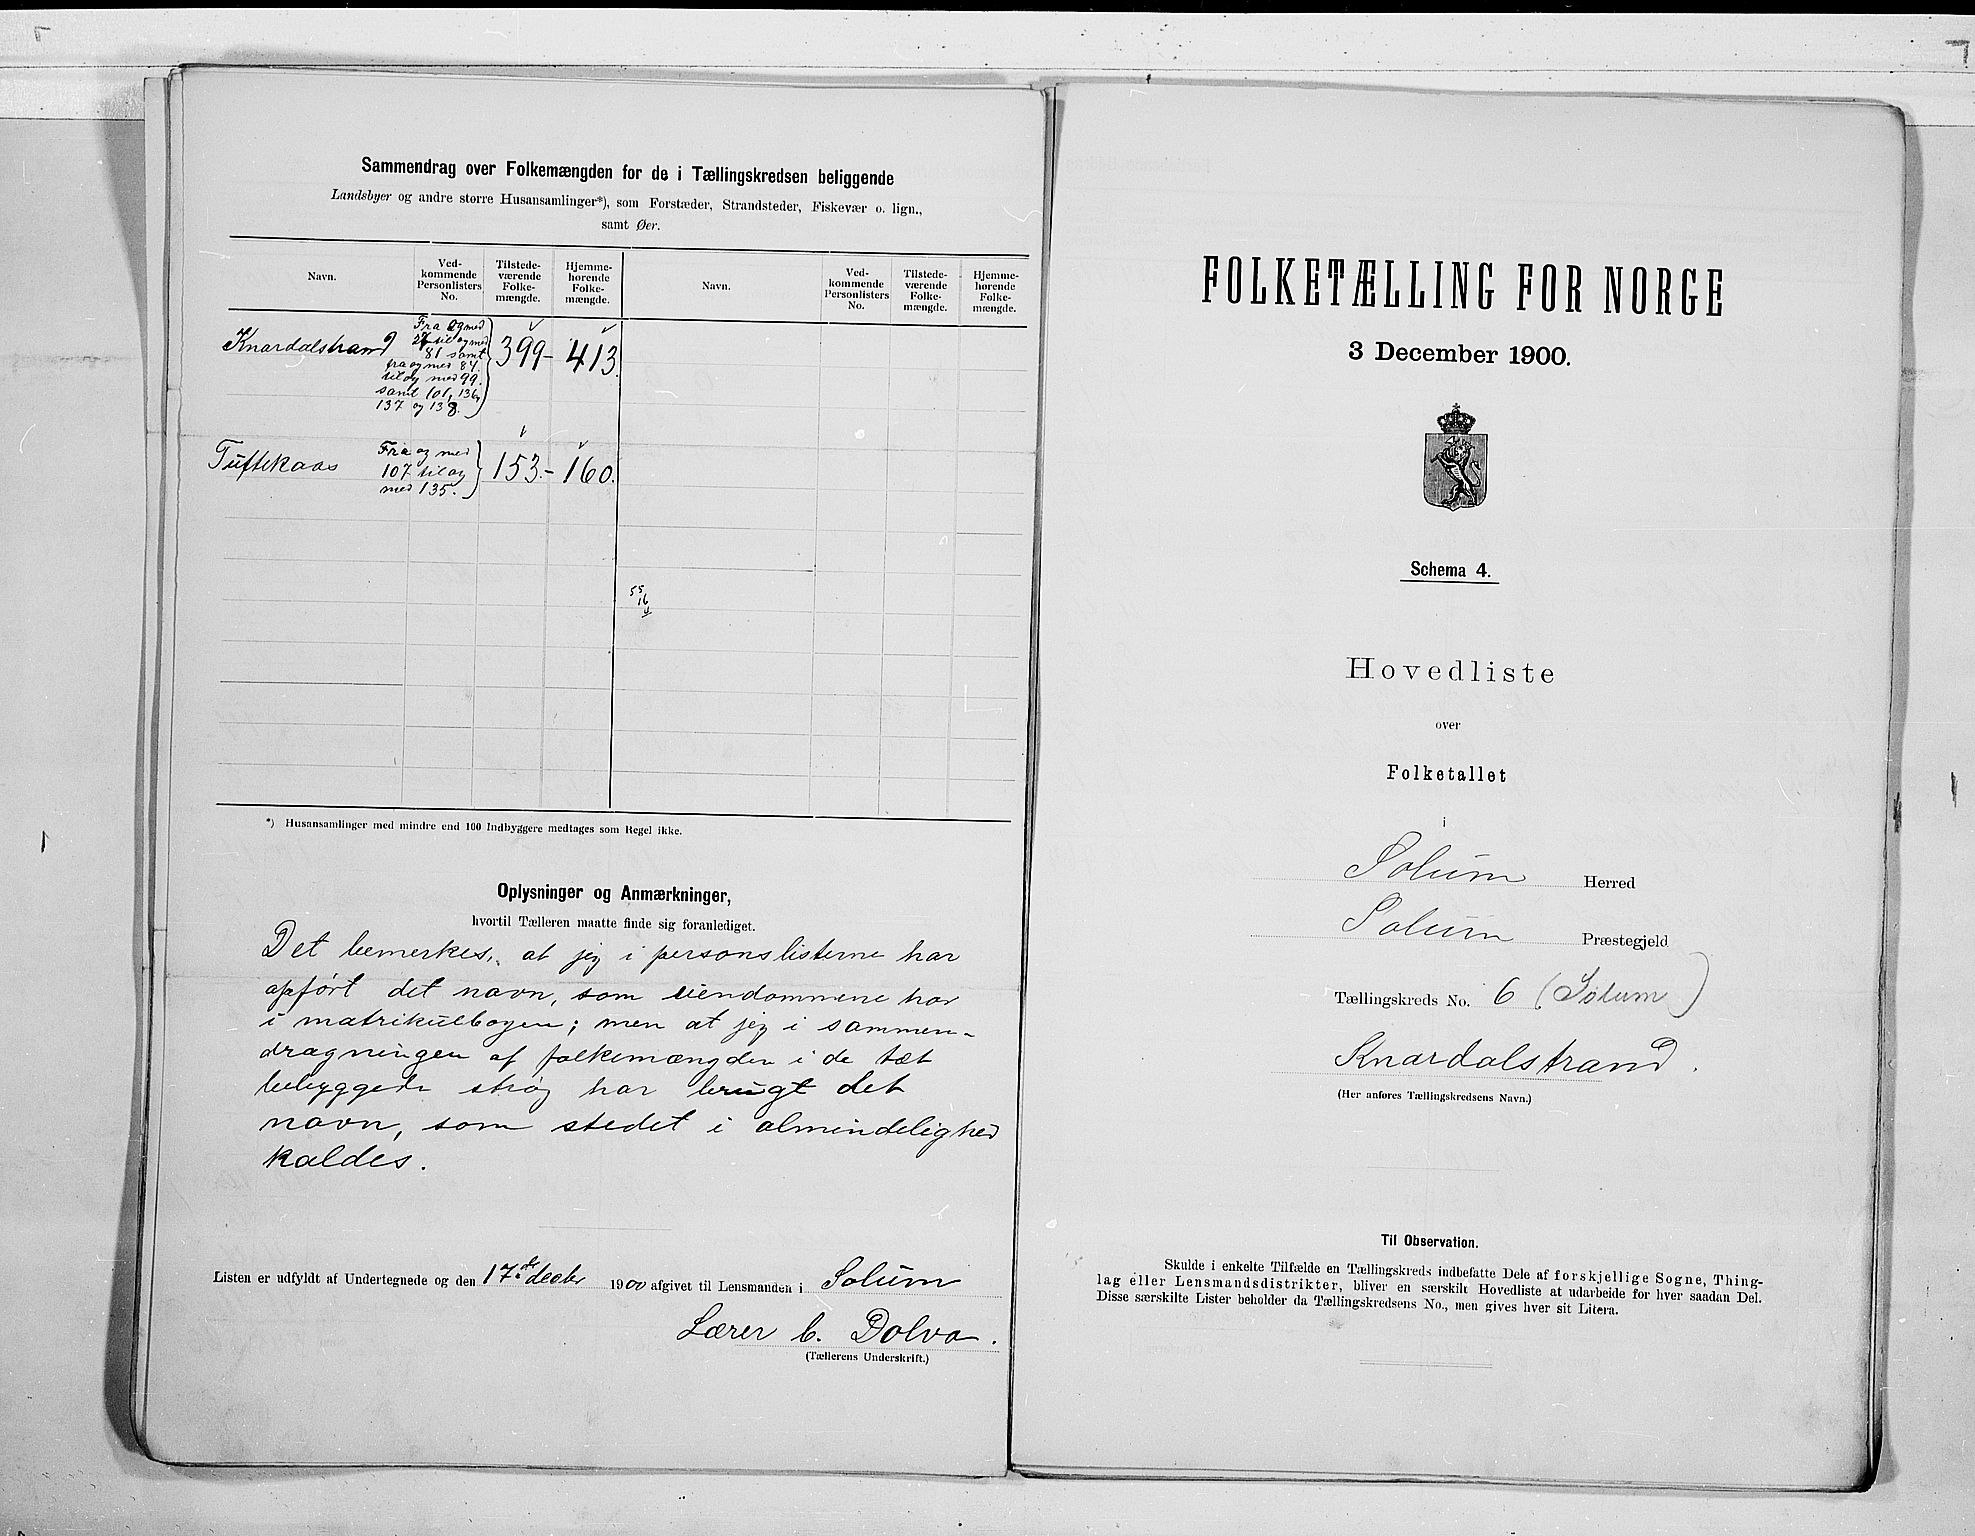 Sammendrag over Folkemængden for de i Tællingskredsen beliggende
Landsbyer og andre større Husansamlinger*), som Forstæder, Strandsteder, Fiskevær o. lign.,
samt Øer.
Navn.
Ved-
kommende
Personlisters
No.
Tilstede-
værende
Folke-
mængde.
Hjemme-
hørende
Folke-
mængde.
Navn.
Ved-
kommende
Personlisters
No.
Tilstede-
værende
Folke-
mængde.
Hjemme-
hørende
Folke-
mængde.
Knardalstrand
Fra og med
til og med
81 samt
fra og med 84.
til og med 99.
samt 101, 136,
137 og 138.
399 - 413.
Tuftekaas
Fra og med
107 til og
med 135.
153. - 160.
55
16
*) Husansamlinger med mindre end 100 Indbyggere medtages som Regel ikke.
Oplysninger og Anmærkninger,
hvortil Tælleren maatte finde sig foranlediget.
Det bemerkes, at jeg i personslisterne har
opført det navn, som eiendommene har
i matrikulbogen; men at jeg i sammen-
dragningen af folkemængden i de tæt
bebyggede strøg har brugt det
navn, som stedet i almindelighed
kaldes.
Listen er udfyldt af Undertegnede og den 17de decbr 1900 afgivet til Lensmanden i Solum
Lærer C. Dolva.
(Tællerens Underskrift.)
FOLKETÆLLING FOR NORGE
3 December 1900.
Schema 4.
Hovedliste
over
Folketallet
i
Solum Herred
Solum Præstegjeld
Tællingskreds No. 6 (Solum)
Knardalstrand.
(Her anføres Tællingskredsens Navn.)
Til Observation.
Skulde i enkelte Tilfælde en Tællingskreds indbefatte Dele af forskjellige Sogne, Thing-
lag eller Lensmandsdistrikter, bliver en særskilt Hovedliste at udarbeide for hver saadan Del.
Disse særskilte Lister beholder da Tællingskredsens No., men gives hver sit Litera.